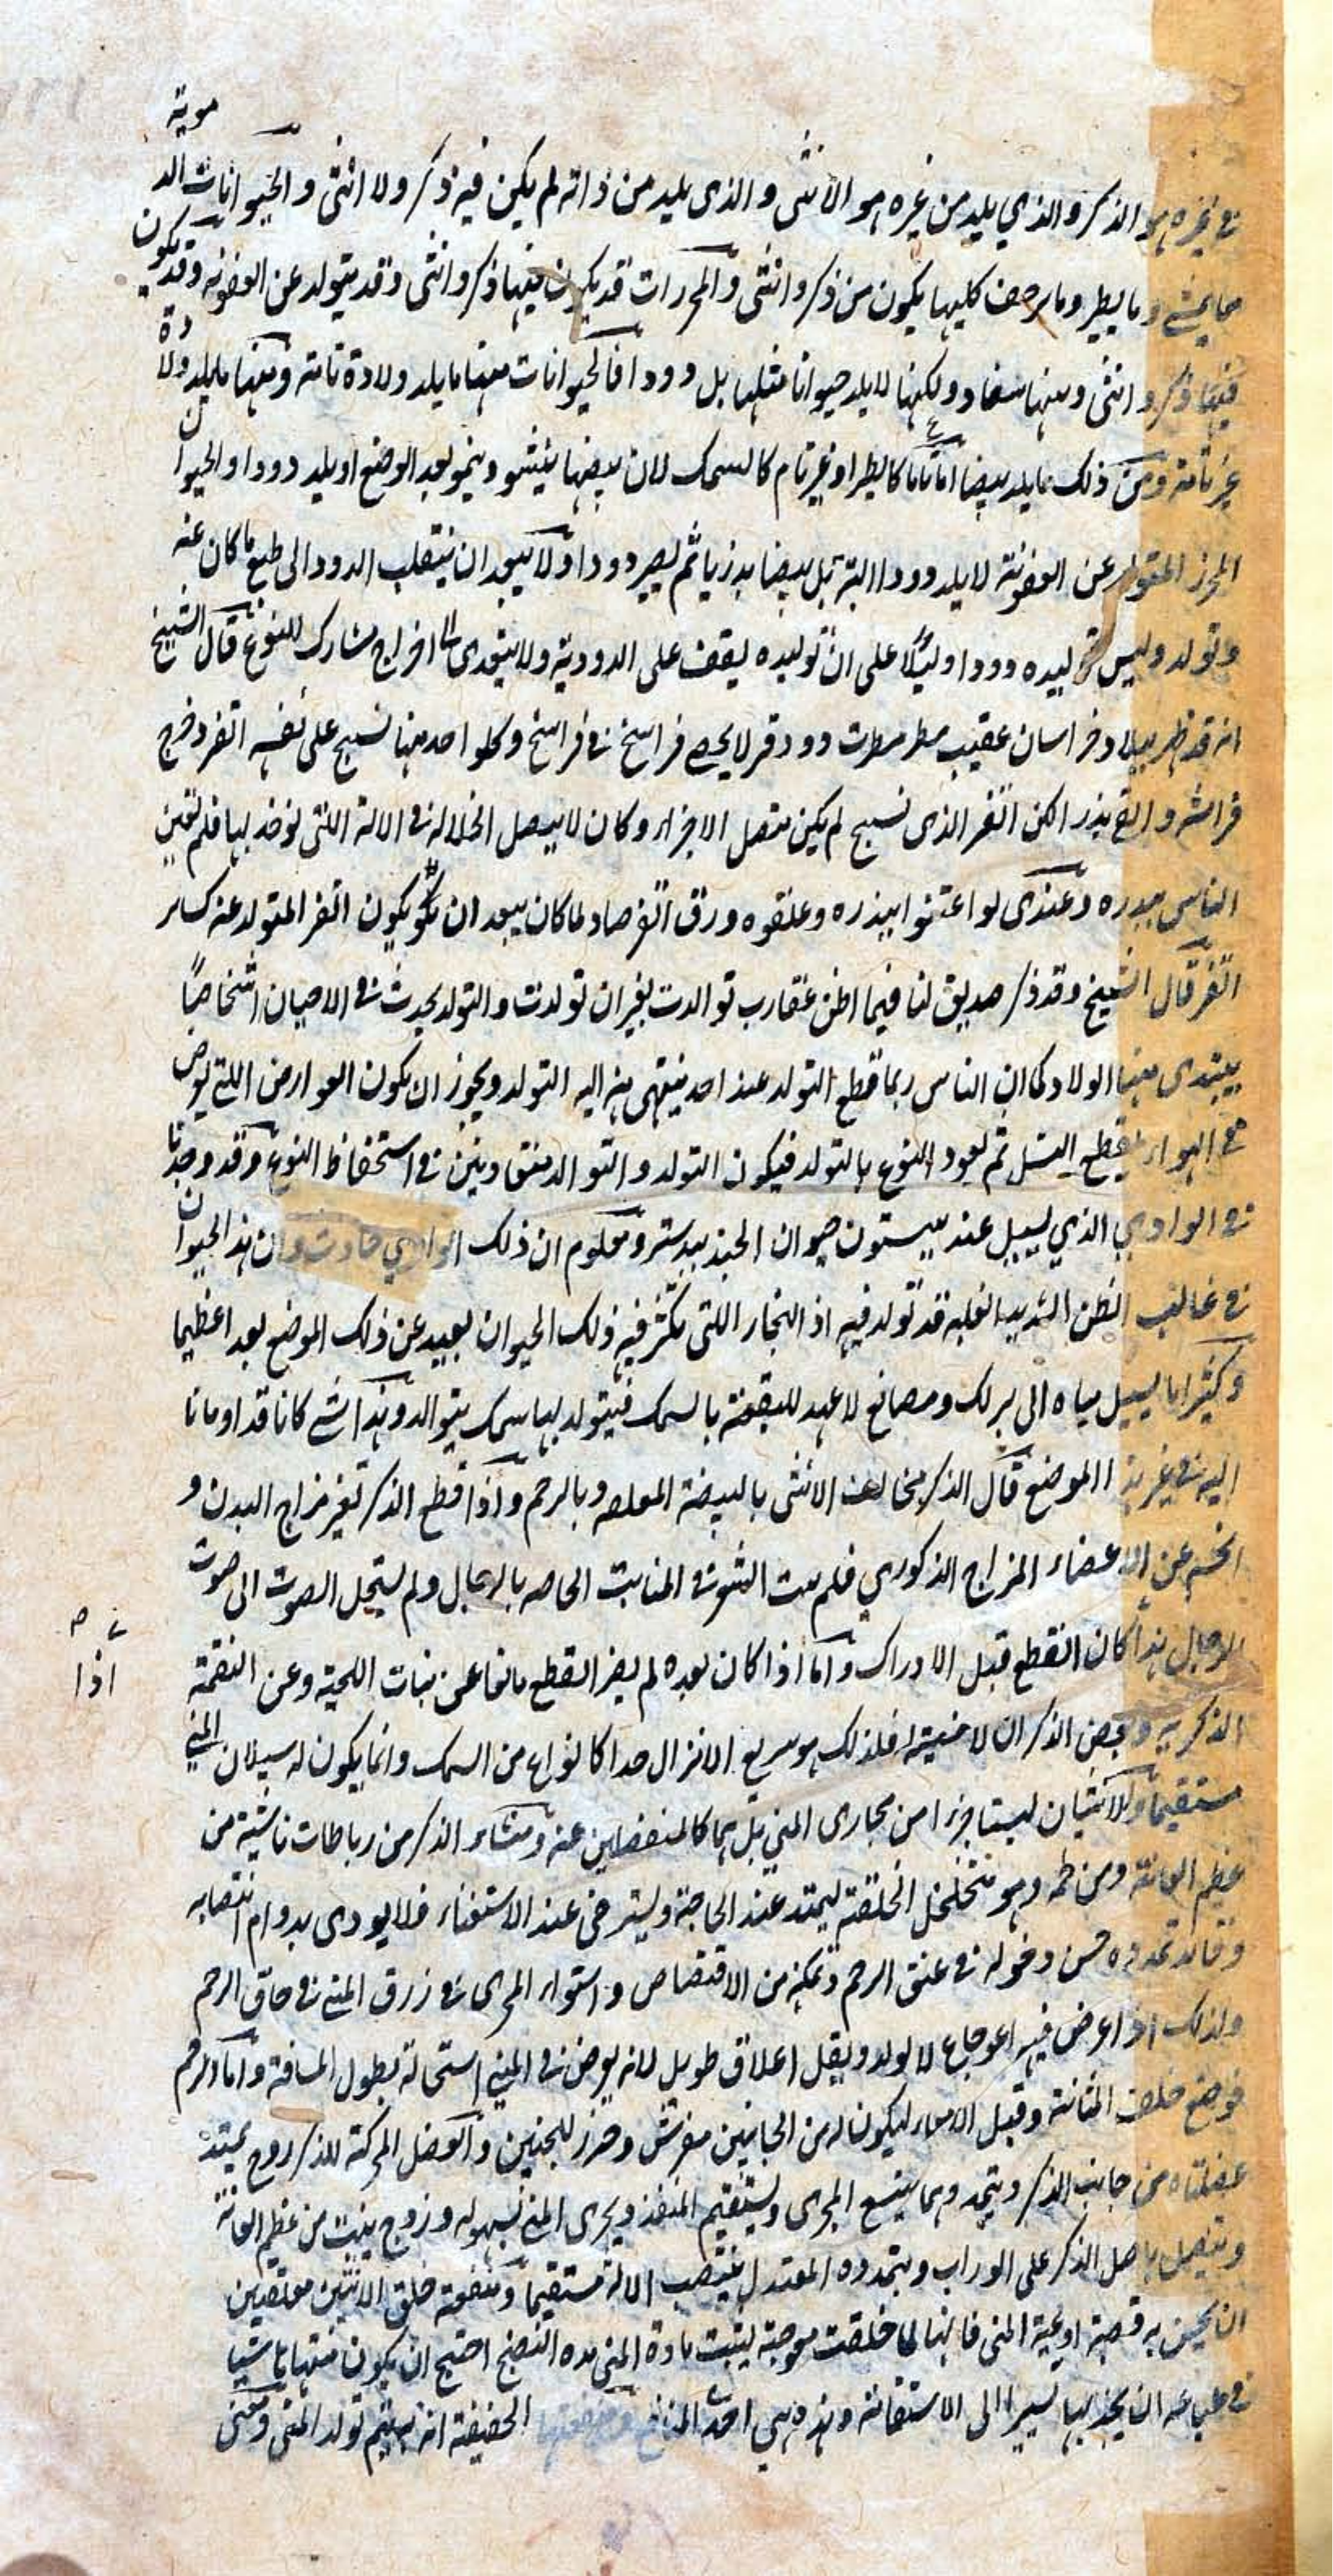 في غيره هو الذكر والذي يليد من غيره هو الانثى والذى يليد من ذاته لم يكن فيه ذكر ولا انثى والحيوانات الد
موية
مما يمشى وما يطير وما يزحف كليها يكون من ذكر وانثى والمحززات قد يكون فيها ذكر وانثى وقد يتولد عن العفونه وقد يكون
فيها ذكر وانثى ومنها سفاد ولكنها لا يلد حيوانا مثلها بل دودا فالحيوانات منها ما يلد ولادة تامة ومنها ما يلد ولادة
غير تامة ومن ذلك ما يلد بيضا اما تاما كالطير او غير تام كالسمك لان بيضها ينشو وينمو بعد الوضع او يلد دودا والحيوان
المحرز المتولد عن العفونة لا يلد دودا البتة بل بيضا بذريا ثم يصير دودا ولا يبعد ان ينقلب الدود الى طبع ما كان عنه
وتولد وليس توليده دودا دليلا على ان توليده يقف على الدودية ولا يتعدى الى افراج مشارك للنوع قال الشيخ
انه قد ظهر ببلاد خراسان عقيب مطر مطرت دود قز لا يحصى فراسخ في فراسخ وكلو احد منها نسج على نفسه القز وخرج
فراشه والقى بذر لكن القز الذى نسج لم يكن متصل الاجزاء وكان لا يتصل انحلاله في الالة اللتي يؤخذ بها فلم يعتن
الناس ببذره وعندى لو اعتنوا ببذره وعلفوه ورق الفرصاد لما كان يبعد ان يكون القز المتولد عنه كساير
القز قال الشيخ وقد ذكر صديق لنا فيما اظن عقارب توالدت بغير ان تولدت والتولد يحدث في الاحيان اشخاصا
يبتدى منها الولاد كما ان الناس ربما قطع التولد عند احد ينتهى منه اليه التولد ويجوز ان يكون العوارض اللتي يعرض
في الهواء يقطع النسل ثم يعود النوع بالتولد فيكون التولد والتوالد متعاونين في استحفاظ النوع وقد وجدنا
في الوادي الذي يسيل عند بيستون حيوان الجند بيدستر ومعلوم ان ذلك الوادي حادث وان هذا الحيوان
في غالب الظن الشديد الغلبه قد تولد فيه اذ البحار اللتى تكثر فيه ذلك الحيوان بعيد عن ذلك الموضع بعدا عظيما
وكثيرا ما يسيل مياه الى برك ومصانع لا عهد للبقعة بالسمك فيتولد بها سمك يتوالد وهذا شى كانا قد اومانا
اليه في غير هذا الموضع قال الذكر يخالف الانثى بالبيضة المعلقه وبالرحم واذا قطع الذكر تغير مزاج البدن و
انحسم عن الاعضاء المزاج الذكوري فلم ينبت الشعر في المنابت الخاصه بالرجال ولم يستحل الصوت الى صوت
الرجال هذا كان القطع قبل الادراك واما اذا كان بعده لم يصر القطع مانعا عن نبات اللحية وعن النغمة
اذا
الذكريه وبعض الذكران لا خصيته له فلذلك هو سريع الانزال جدا كانواع من السمك وانما يكون له سيلان المني
مستقيما والانثيان ليستا جزءا من مجارى المني بل هما كالمنفصلين عنه ومنشاء الذكر من رباطات ناشية من
عظم العانة ومن لحمه وهو متخلخل الخلقة ليمتد عند الحاجة ويسترخى عند الاستغناء فلا يودى بدوام انتصابه
وفايدة تمدده حسن دخوله في عنق الرحم وتمكنه من الاقتضاض واستواء المجرى في زرق المني في حاق الرحم
ولذلك اذا عرض فيه اعوجاج لا يولد ويقل اعلاق طويل لانه يعرض في المني استحالة بطول المسافة واما الرحم
فوضع خلف المثانة وقبل الامعاء ليكون له من الجانبين مفرش وحرز للجنين والعضل المحركة للذكر زوج يمتد
عضلتاه من جانبي الذكر ويتمدد وهما يتسع المجرى ويستقيم المنفذ ويجرى المني بسهوله وزوج ينبت من عظم العانة
ويتصل باصل الذكر على الوراب وبتمدده المعتدل ينتصب الالة مستقيما ومنفعة خلق الانثيين معلقين
ان يحسن به قصبة اوعية المنى فانها لما خلقت معوجة ليثبت مادة المنى مده النضج احتيج ان يكون منتهاها شيا
في طباعه ان يجذبها يسيرا الى الاستقامة وهذه هي احدى المنافع ومنفعتها الحقيقة انه بها يتم تولد المنى ومعنى